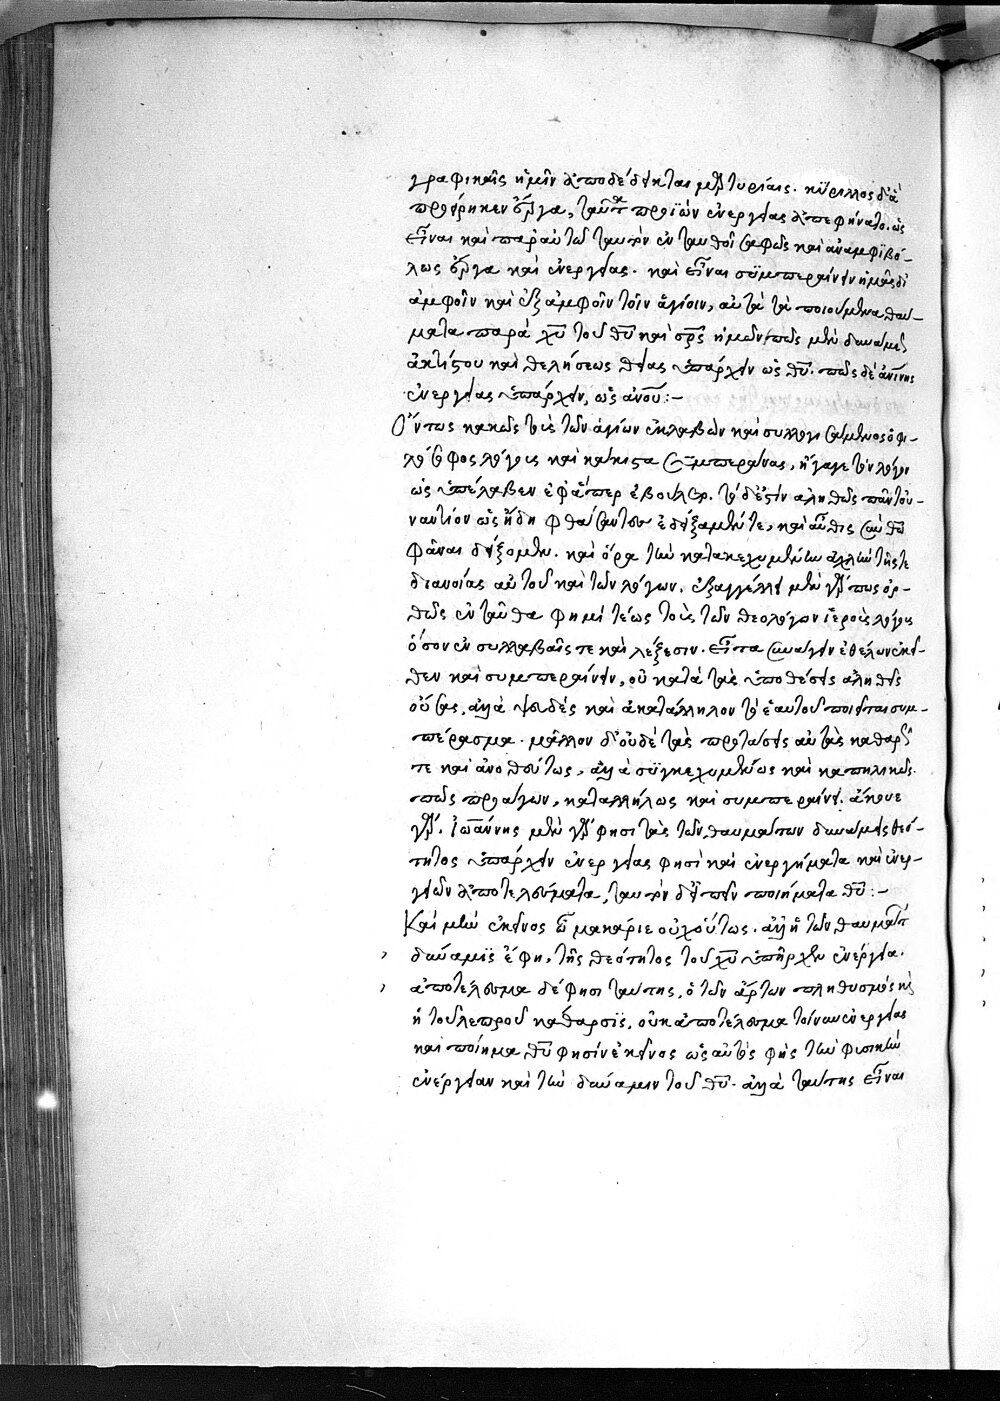 γραφικαῖς ἡμῖν ἀποδέδεικται μαρτυρίαις. κύριλλος δ' ἃ
προείρηκεν ἔργα, ταῦτα προϊὼν ἐνεργείας ἀπεφήνατο. ὡς
εἶναι καὶ παρ' αὐτῷ ταυτὸν ἐνταυθοῖ σαφῶς καὶ ἀναμφιβό-
λως ἔργα καὶ ἐνεργείας. καὶ εἶναι συμπεραίνειν ἡμᾶς δι'
ἀμφοῖν καὶ ἐξ ἀμφοῖν τοῖν ἁγίοιν, αὐτὰ τὰ ποιούμενα θαύ-
ματα παρὰ χυ τοῦ θυ καὶ σρς ἡμῶν, πῶς μὲν δυνάμεις
ἀκτίστου καὶ θελήσεως θείας ὑπάρχειν ὡς θυ. πῶς δὲ ἀνινης
ἐνεργείας ὑπάρχειν, ὡς ἀνου:–
Οὕτως κακῶς τὰς τῶν ἁγίων ἐκλαβὼν καὶ συλλογισάμενος ὁ φι-
λόσοφος λόγους καὶ κάκιστα συμπεράνας, ἤγαγε τὸν λόγον
ὡς ὑπέλαβεν ἐφ' ἅπερ ἐβούλετο. τὸ δ' ἐστὶν ἀληθῶς πᾶν τοὐ-
ναντίον ὡς ἤδη φθάσαντες ἐδείξαμέν τε, καὶ αὖθις σὺν θῶ
φάναι δείξομεν. καὶ ὅρα τὴν κατακεχυμένην ἀχλὺν τῆς τε
διανοίας αὐτοῦ καὶ τῶν λόγων. ἐξαγγέλλει μὲν γάρ πως ὀρ-
θῶς ἐνταῦθα φημὶ τέως τοὺς τῶν θεολόγων ἱεροὺς λόγους
ὅσον ἐν συλλαβαῖς τε καὶ λέξεσιν. εἶτα συνάγειν ἐθέλων ἐκεῖ-
θεν καὶ συμπεραίνειν, οὐ κατὰ τὰς ὑποθέσεις ἀληθεῖς
οὔσας, ἀλλὰ ψευδὲς καὶ ἀκατάλληλον τὸ ἑαυτοῦ ποιεῖται συμ-
πέρασμα. μᾶλλον δ' οὐδὲ τὰς προτάσεις αὐτὰς καθαρῶς
τε καὶ ἀνοθεύτως, ἀλλὰ συγκεχυμένως καὶ καπηλικῶς
πῶς προάγων, καταλλήλως καὶ συμπεραίνει. ἄκουε
γάρ. Ἰωάννης μὲν γάρ φησι τὰς τῶν θαυμάτων δυνάμεις θεό-
τητος ὑπάρχειν ἐνεργείας φησὶ καὶ ἐνεργήματα καὶ ἐνερ-
γειῶν ἀποτελέσματα, ταυτὸν δ' εἰπεῖν ποιήματα θυ:–
Καὶ μὴν ἐκεῖνος ὦ μακάριε οὐχ οὕτως. ἀλλ' ἡ τῶν θαυμάτων
δύναμις ἔφη, τῆς θεότητος τοῦ χυ ὑπῆρχεν ἐνέργεια.
ἀποτέλεσμα δέ φησι ταύτης, ὁ τῶν ἄρτων πληθυσμός, ἢ
ἡ τοῦ λεπροῦ κάθαρσις. οὐκ ἀποτέλεσμα τοίνυν ἐνεργείας
καὶ ποίημα θυ φησὶν ἐκεῖνος ὡς αὐτὸς φῂς τὴν φυσικὴν
ἐνέργειαν καὶ τὴν δύναμιν τοῦ θυ. ἀλλὰ ταύτης εἶναι